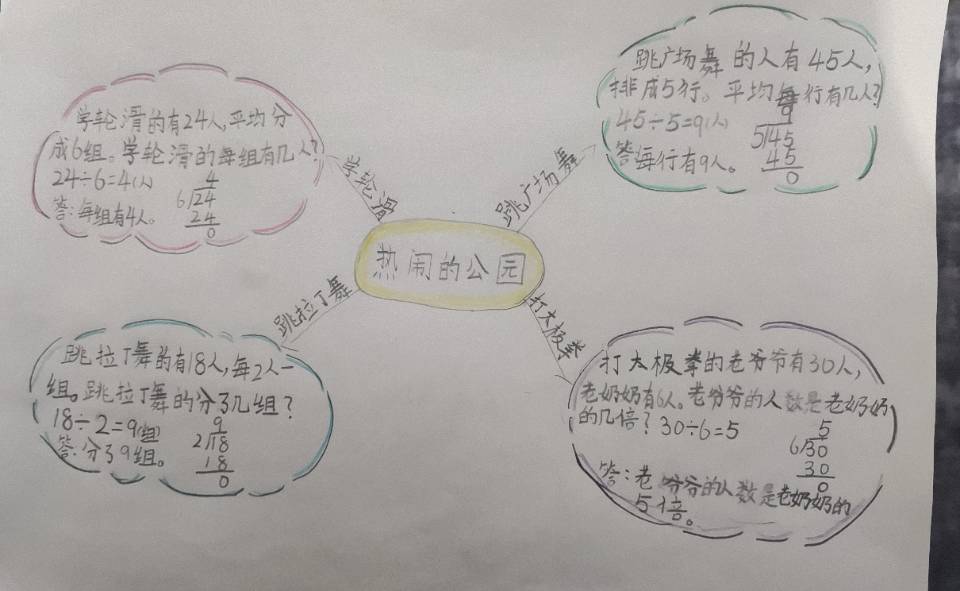 热闹的公园
学轮滑
学轮滑的有24人,平均分
成6组。学轮滑的每组有几人?
24÷6=4(人)
答:每组有4人。
4
6 24
24
0
跳广场舞
跳广场舞的人有45人,
排成5行。平均每行有几人?
45÷5=9(人)
答每行有9人。
9
5 45
45
0
跳拉丁舞
跳拉丁舞的有18人,每2人一
组。跳拉丁舞的分了几组?
18÷2=9(组)
答:分了9组。
9
2 18
18
0
打太极拳
打太极拳的老爷爷有30人,
老奶奶有6人。老爷爷的人数是老奶奶
的几倍?30÷6=5
5
6 30
30
0
答:老爷爷的人数是老奶奶的
5倍。